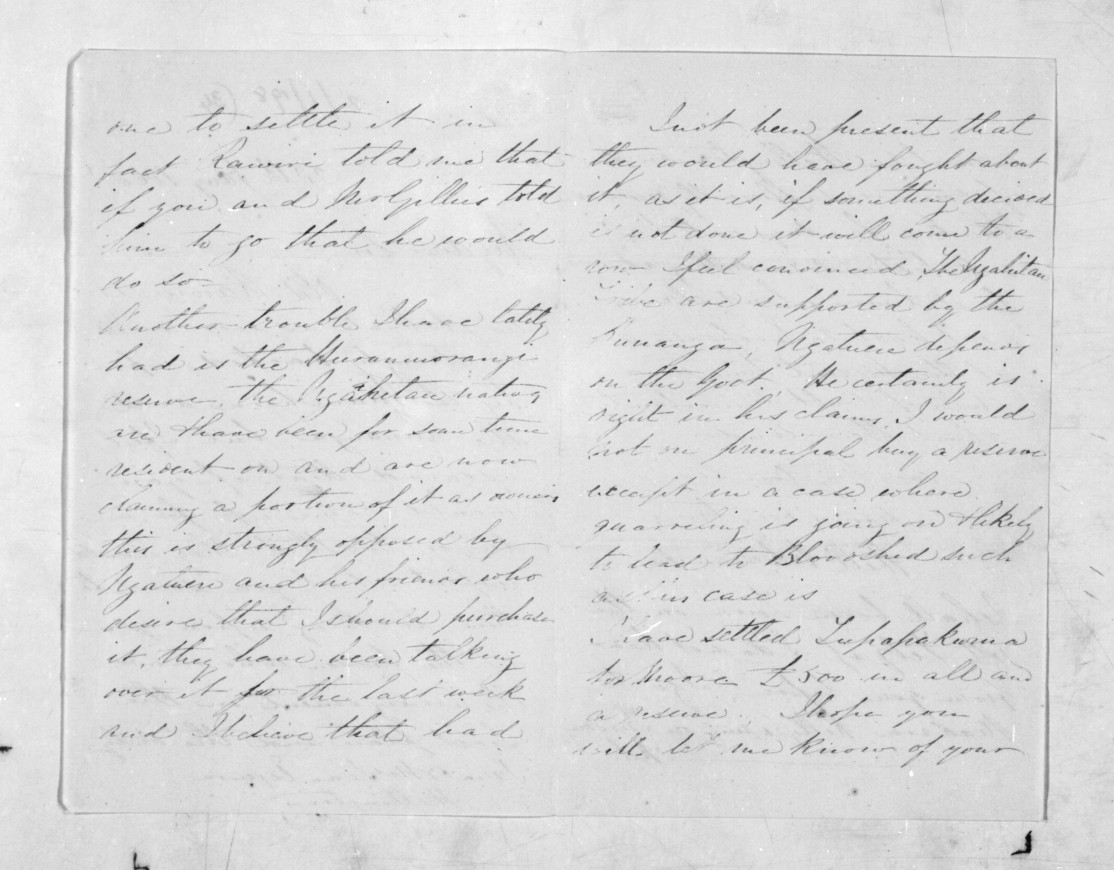 one to settle it in
fact Rawiri told me that
if you and McGillis told
him to go that he would
do so
Another trouble I have lately
had is the Huramuorangi
reserve. the Ngahitau natives
are & have been for some time
resident on and are now
claiming a portion of it as owners
this is strongly opposed by
Ngatuere and his friends who
desire that I should purchase
it, they have been talking
over it for the last week
and I believe that had
I not been present that
they would have fought about
it, as it is, if something decided
is not done it will come to a
row I feel convinced, The Ngahitau
Tribe are supported by the
Runanga, Ngatuere depends
on the Govt. He certainly is
right in his claims, I would
not on principal buy a reserve
except in a case where
quarreling is going on & likely
to lead to Bloodshed such
as this case is
I have settled Tupapakurua
for Moore £500 in all and
a reserve. I hope you
will let me know of your